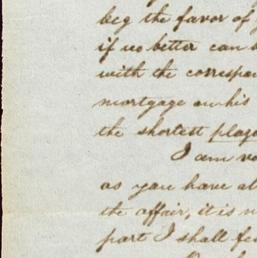 beg the favor of
if no better can
with the correspon
mortgage on his
the shortest plazo
I am
as you have al
the affair, it is n
part I shall fe